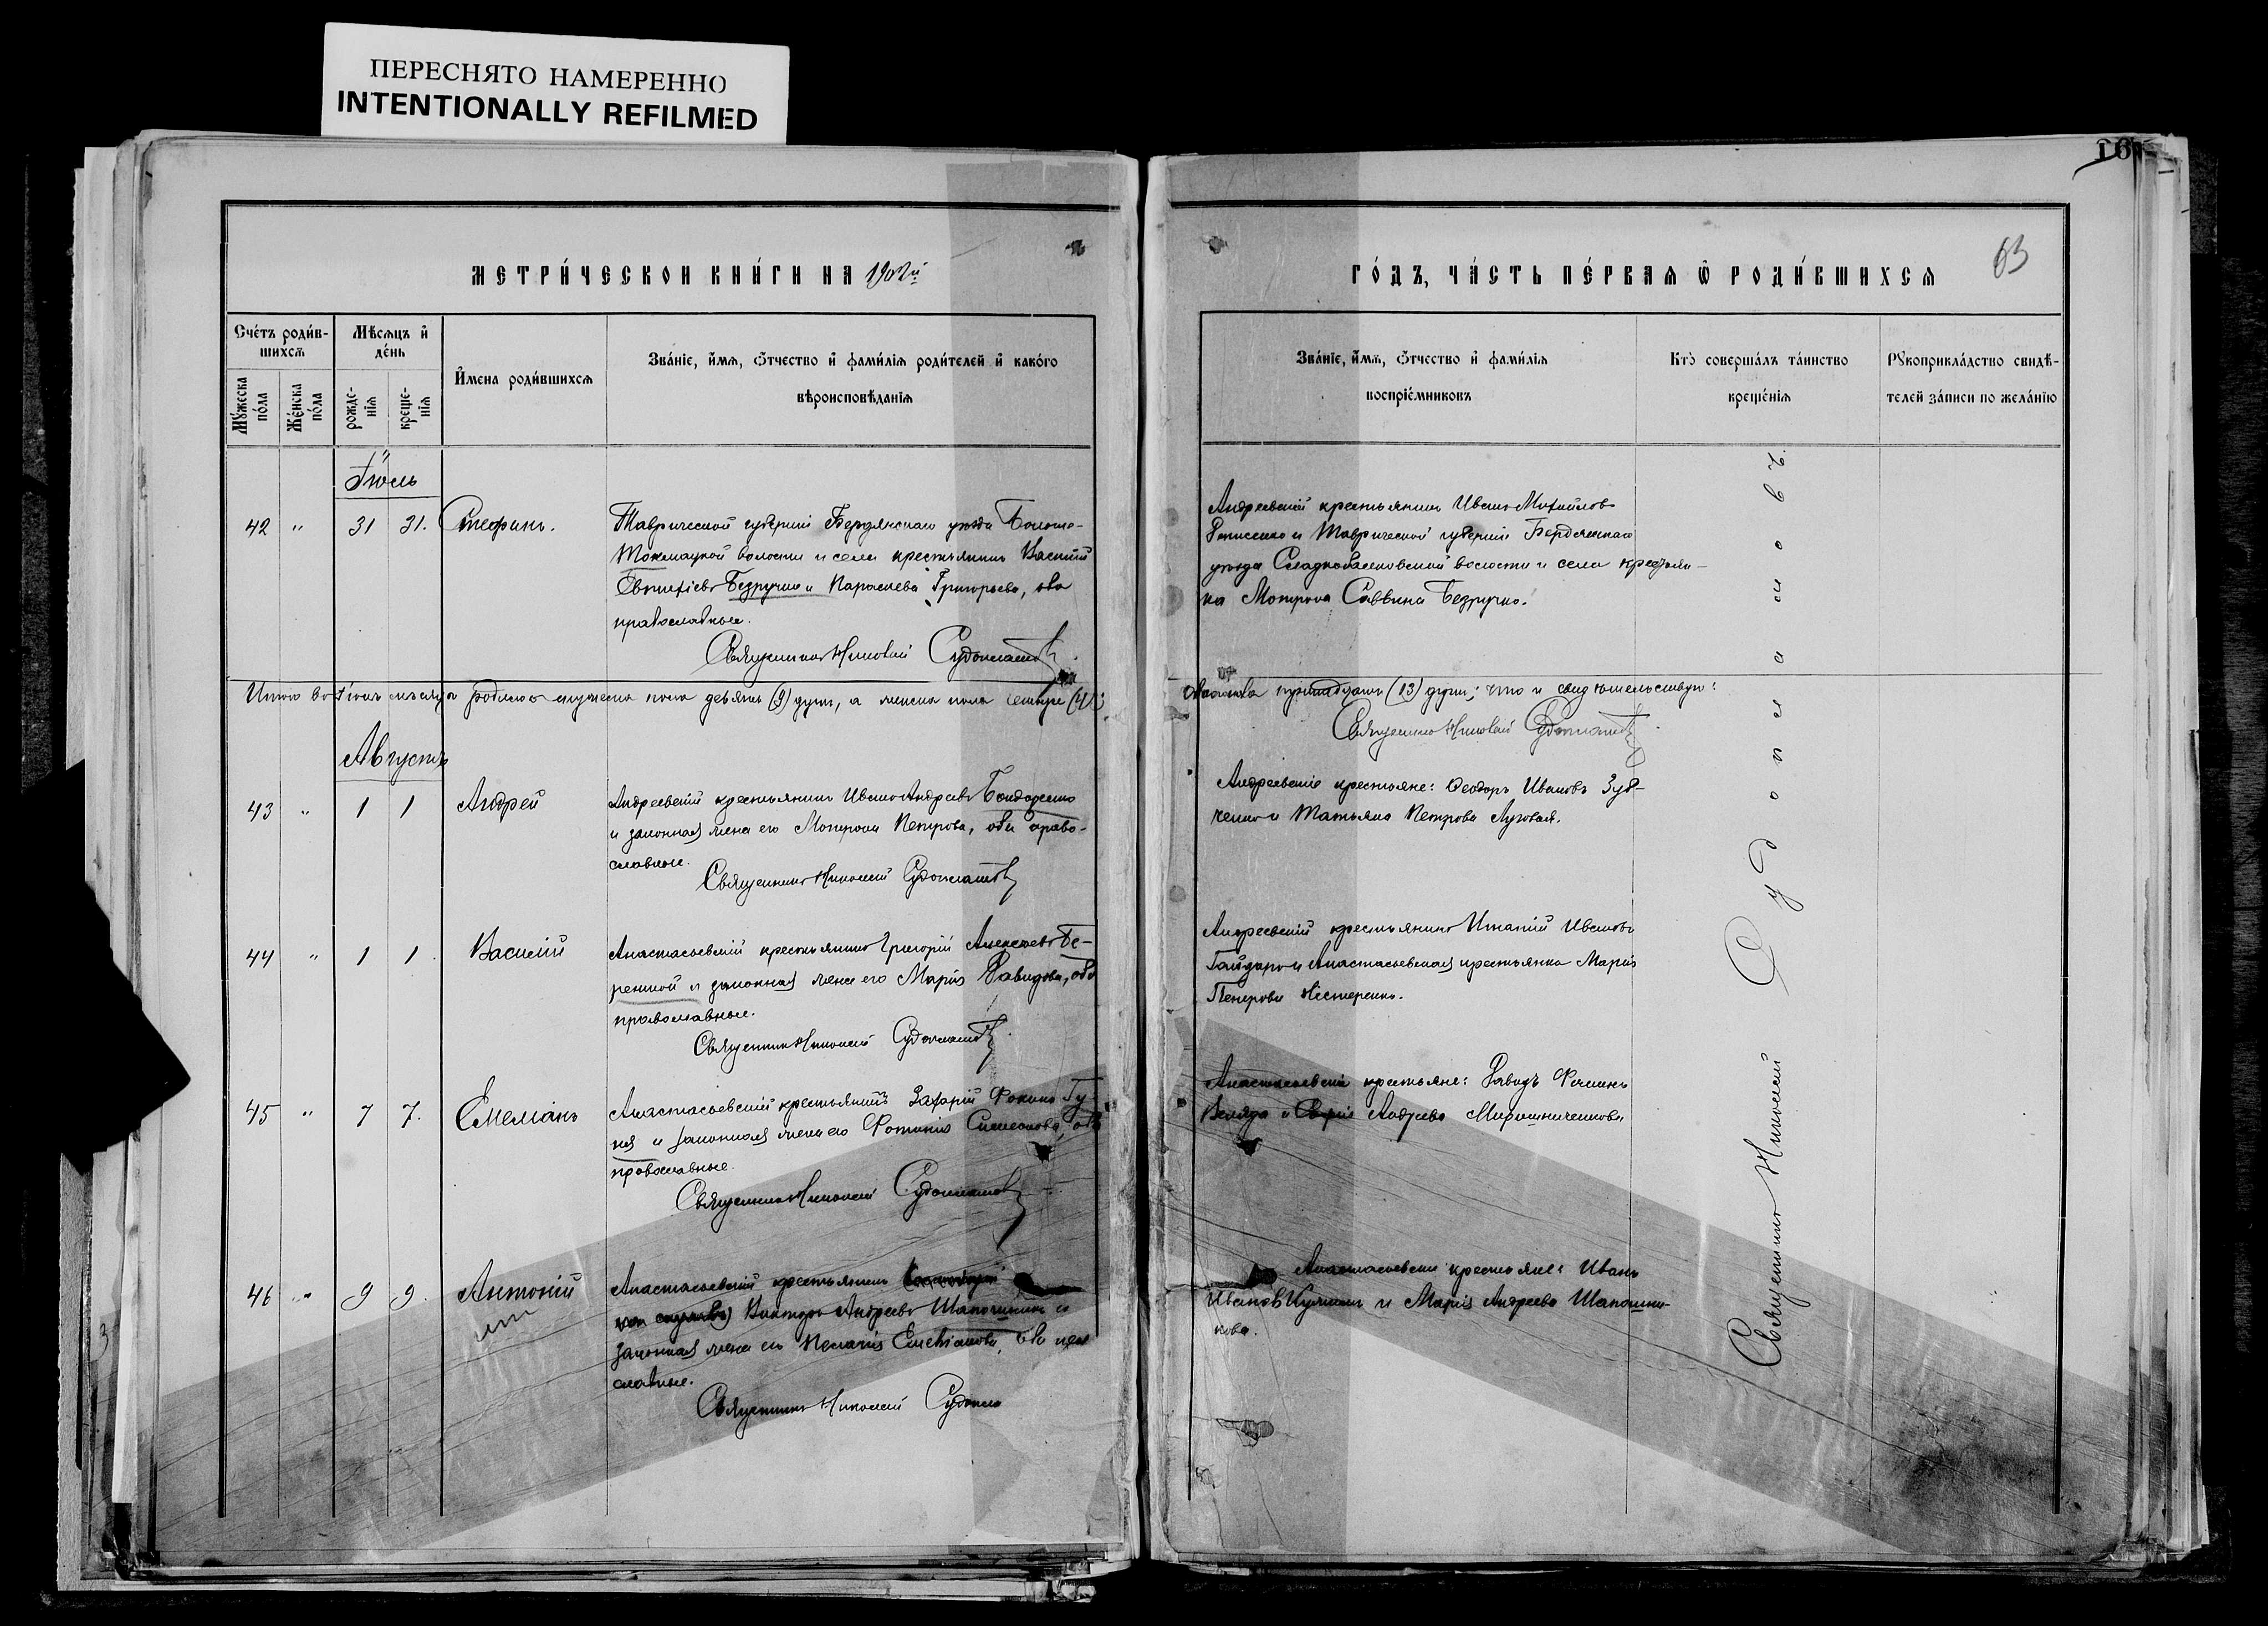 ПЕРЕСНЯТО НАМЕРЕННО
INTENTIONALLY REFILMED
16
63
МЕТРИ́ЧЕСКОИ КНИ́ГИ НА 1902й
ГО́ДЪ, ЧА́СТЬ ПЕ́РВАѦ Ѿ РОДИ́ВШИХСѦ
Сче́тъ роди́в-
шихсѧ
Мꙋ́жеска по́ла
Же́нска по́ла
Мѣ́сѧцъ и҆ де́нь
рожде-
нїѧ
креще-
нїѧ
И҆мена роди́вшихсѧ
Зва́нїе, и҆́мѧ, ѻ҆́тчество и҆ фами́лїѧ роди́телей и҆ како́го
вѣроисповѣ́данїѧ
Зва́нїе, и҆́мѧ, ѻ҆́тчество и҆ фами́лїѧ
воспрїе́мниковъ
Кто̀ соверша́лъ та́инство
креще́нїѧ
Рꙋкоприкла́дство свидѣ́-
телей за́писи по жела́нїю
Іюль
42 " 31 31. Стефанъ.
Таврической губерніи Бердянскаго уѣзда Больше-
Токмацкой волости и села крестьянинъ Василій
Безручко и Параскева Григорьева, оба
православные.
Священникъ Николай Судоплатовъ
Андреевскій крестьянинъ Иванъ Михайловъ
и Таврической губерніи Бердянскаго
уѣзда волости и села крестьян-
ка Матрона Саввина Безручко.
Итого въ Іюлѣ мѣсяцѣ родилось мужеска пола девять (9) душъ, а женска пола четыре (4);
обоего пола тринадцать (13) душъ; что и свидѣтельствую:
Священникъ Николай Судоплатовъ
Августъ
43 " 1 1 Андрей
Андреевскій крестьянинъ Иванъ Андреевъ Бондаренко
и законная жена его Матрона Петрова, оба право-
славные.
Священникъ Николай Судоплатовъ
Андреевскіе крестьяне: Ѳеодоръ Ивановъ Зуб-
ченко и Татьяна Петрова Луговая.
44 " 1 1. Василій
Анастасьевскій крестьянинъ Григорій Алексѣевъ Бе-
режной и законная жена его Марія Давидова, оба
православные.
Священникъ Николай Судоплатовъ
Андреевскій крестьянинъ Игнатій Ивановъ
Гайдаръ и Анастасьевская крестьянка Марія
Петрова Нестеренко.
45 " 7 7. Емеліанъ
Анастасьевскій крестьянинъ Захарій Фокинъ Гу-
и законная жена его Фотинія Симеонова, оба
православные.
Священникъ Николай Судоплатовъ
Анастасьевскіе крестьяне: Давидъ
и Андреева Мирошниченкова
46 " 9 9. Антоній
Анастасьевскій крестьянинъ
Викторъ Андреевъ Шапошникъ и
законная жена его Пелагія Емеліанова, оба право
славные.
Священникъ Николай Судопла
Анастасьевскіе крестьяне: Иванъ
Ивановъ и Марія Андреева Шапошни-
кова.
Священникъ Николай Судоплатовъ.